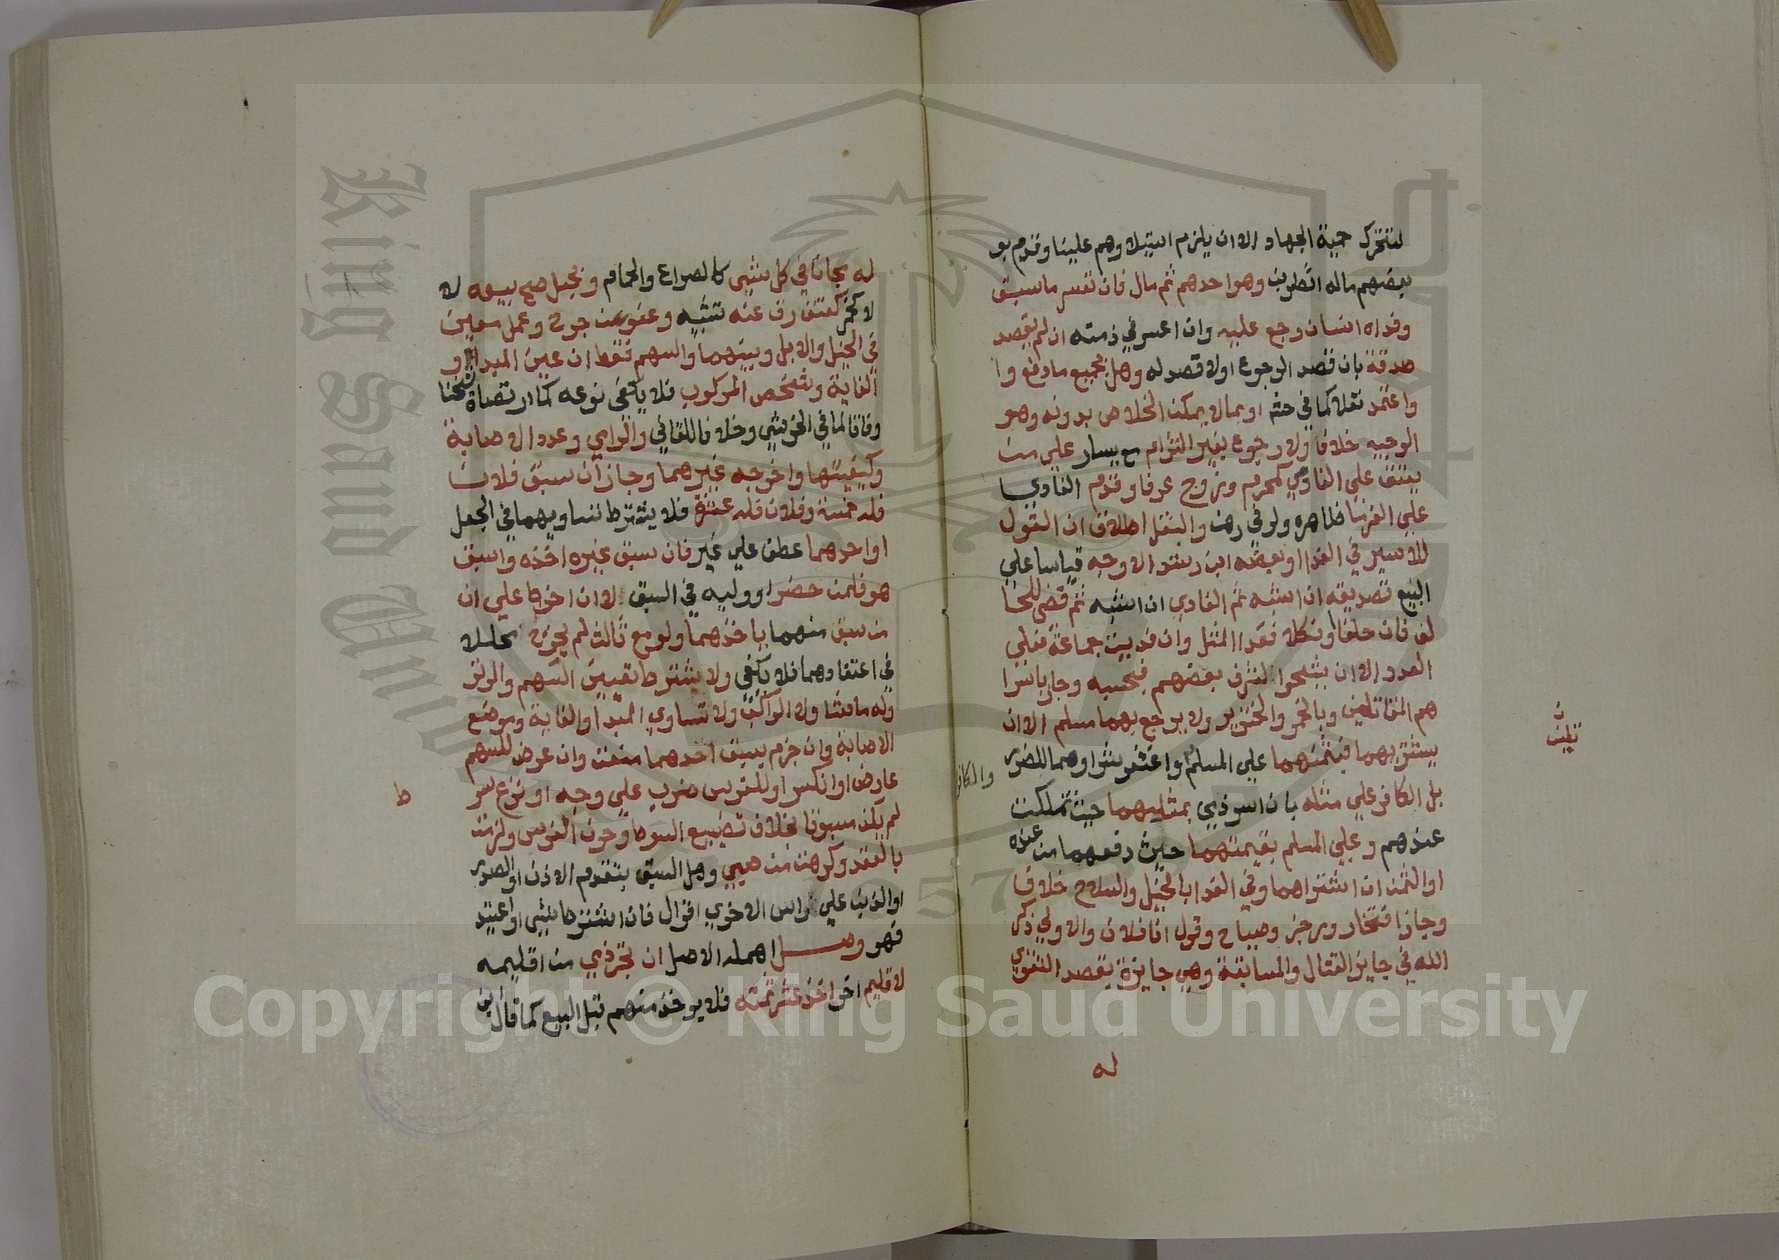 لتتحرك حمية الجهاد الا ان يلزم استيلاوهم علينا وقدم بو
بعضهم ماله الطرب وهو احدهم ثم مال فان تعسر ما سبق
وفداه انسان رجع عليه وان اعسر في ذمته ان لم يقصد
صدقة بان قصد الرجوع اولا قصد له وهل بجميع ما دفع وا
واعتمد نقلا كما في حش او بما لا يمكن الخلاص بدونه وهو
الوجيه خلافا ولا رجوع بغير التزام مع يسار على من
يعتق على الفادي كمحرم وزوج عرفا وقدم الفادي
على الغرما ظاهره ولو في رهن والنقل اطلاق ان القول
للاسير في الفدا او بعضه ابن رشد الاوجه قياسا على
البيع تصديقه ان اشبه ثم الفادي ان اشبه ثم قضى للحا
لف فان حلفا او نكلا ففدا المثل وان فدى بين جماعة فعلى
العدد الا ان يشحوا لشرف بعضهم فبحسبه وجاز باسرا
هم المقاتلين وبالخمر والخنزير ولا يرجع بهما مسلم الا ان
يشتريهما فبثمنهما على المسلم واغتفر شراوهما للضرر
بل الكافر على مثله بان اسر ذمي بمثليهما حيث تملكت
عندهم وعلى المسلم بقيمتهما حيث دفعهما من عنده
او الثمن ان اشتراهما وفي الفدا بالخيل والسلاح خلاف
وجاز افتخار ورجز وصياح وقول انا فلان والاولى ذكر
الله في جايز القتال والمسابقة وهي جايزة بقصد التقوي
له
والكافر
له مجانا في كل شيى كالصراع والحمام وبجعل صح بيعه لا
لا كخمر كعتق رق عنه تنبيه وعفو من جرح وعمل معين
في الخيل والابل وبينهما والسهم فقط ان عين المبدا و
الغاية وشخص المركوب فلا يكفى نوعه كما ارتضاه شيخنا
وفاقا لما في الخرشي وخلافا للقاني والرامي وعدد الاصابة
وكيفيتها واخرجه غيرهما وجاز ان سبق فلان
فله خمسة وفلان فله عشرة فلا يشترط تساويهما في الجعل
او احدهما عطف على غير فان سبق غيره اخذه وان سبق
هو فلمن حضر او وليه في السبق لا ان اخرجا على ان
من سبق منهما ياخذهما ولو مع ثالث لم يجوزه محللا
في اعتقادهما فلا يكفي ولا يشترط تعيين السهم والوتر
وله ما شا ولا الراكب ولا تساوي المبدا والغاية وموضع
الاصابة وان جزم بسبق احدهما منعت وان عرض للسهم
عارض او انكسر او للفرس ضرب على وجه او نزع سو
لم يكن مسبوقا بخلاف تضييع السوط وحرن الفرس ولزمت
بالعقد وكرهت من صبي وهل السبق بتقدم الاذن او الصدر
او الذنب على راس الاخرى اقوال فان اشترطا شيى او اعتيد
فهو وصل اهمله الاصل ان تجر ذمي من اقليمه
لاقليم اخر اخذ عشر ثمنه فلا يوخذ منهم قبل البيع كما قال ابن
ط
King Saud University
Copyright © King Saud University
1957